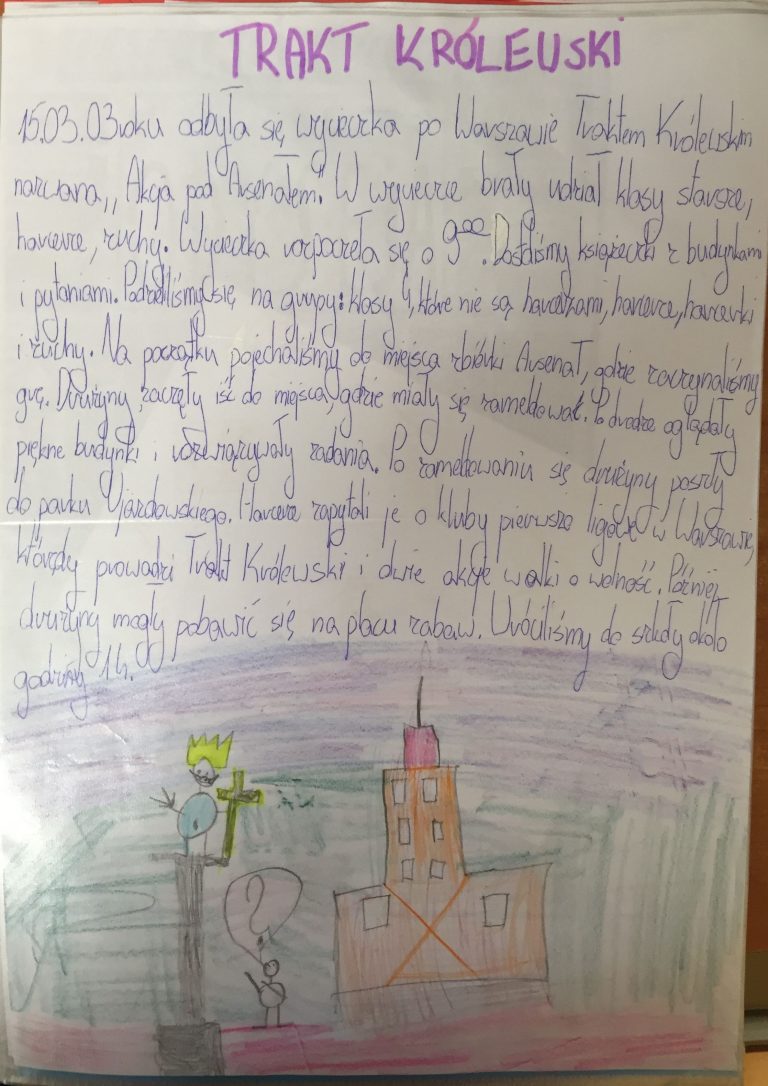 TRAKT KRÓLEWSKI
15.03.03 roku odbyła się wycieczka po Warszawie Traktem Królewskim
nazwana „Akcja pod Arsenałem." W wycieczce brały udział klasy starsze,
harcerze, zuchy. Wycieczka rozpoczęła się o 9⁰⁰. Dostaliśmy książeczki z budynkami
i pytaniami. Podzieliliśmy się na grupy: klasy 4, które nie są harcerzami, harcerze, harcerki
i zuchy. Na początku pojechaliśmy do miejsca zbiórki Arsenał, gdzie zaczynaliśmy
grę. Drużyny zaczęły iść do miejsca, gdzie miały się zameldować. Po drodze oglądały
piękne budynki i rozwiązywały zadania. Po zameldowaniu się drużyny poszły
do parku Ujazdowskiego. Harcerze zapytali je o kluby pierwszo ligowe w Warszawie,
którędy prowadzi Trakt Królewski i dwie akcje walki o wolność. Później
drużyny mogły pobawić się na placu zabaw. Wróciliśmy do szkoły około
godziny 14.
?